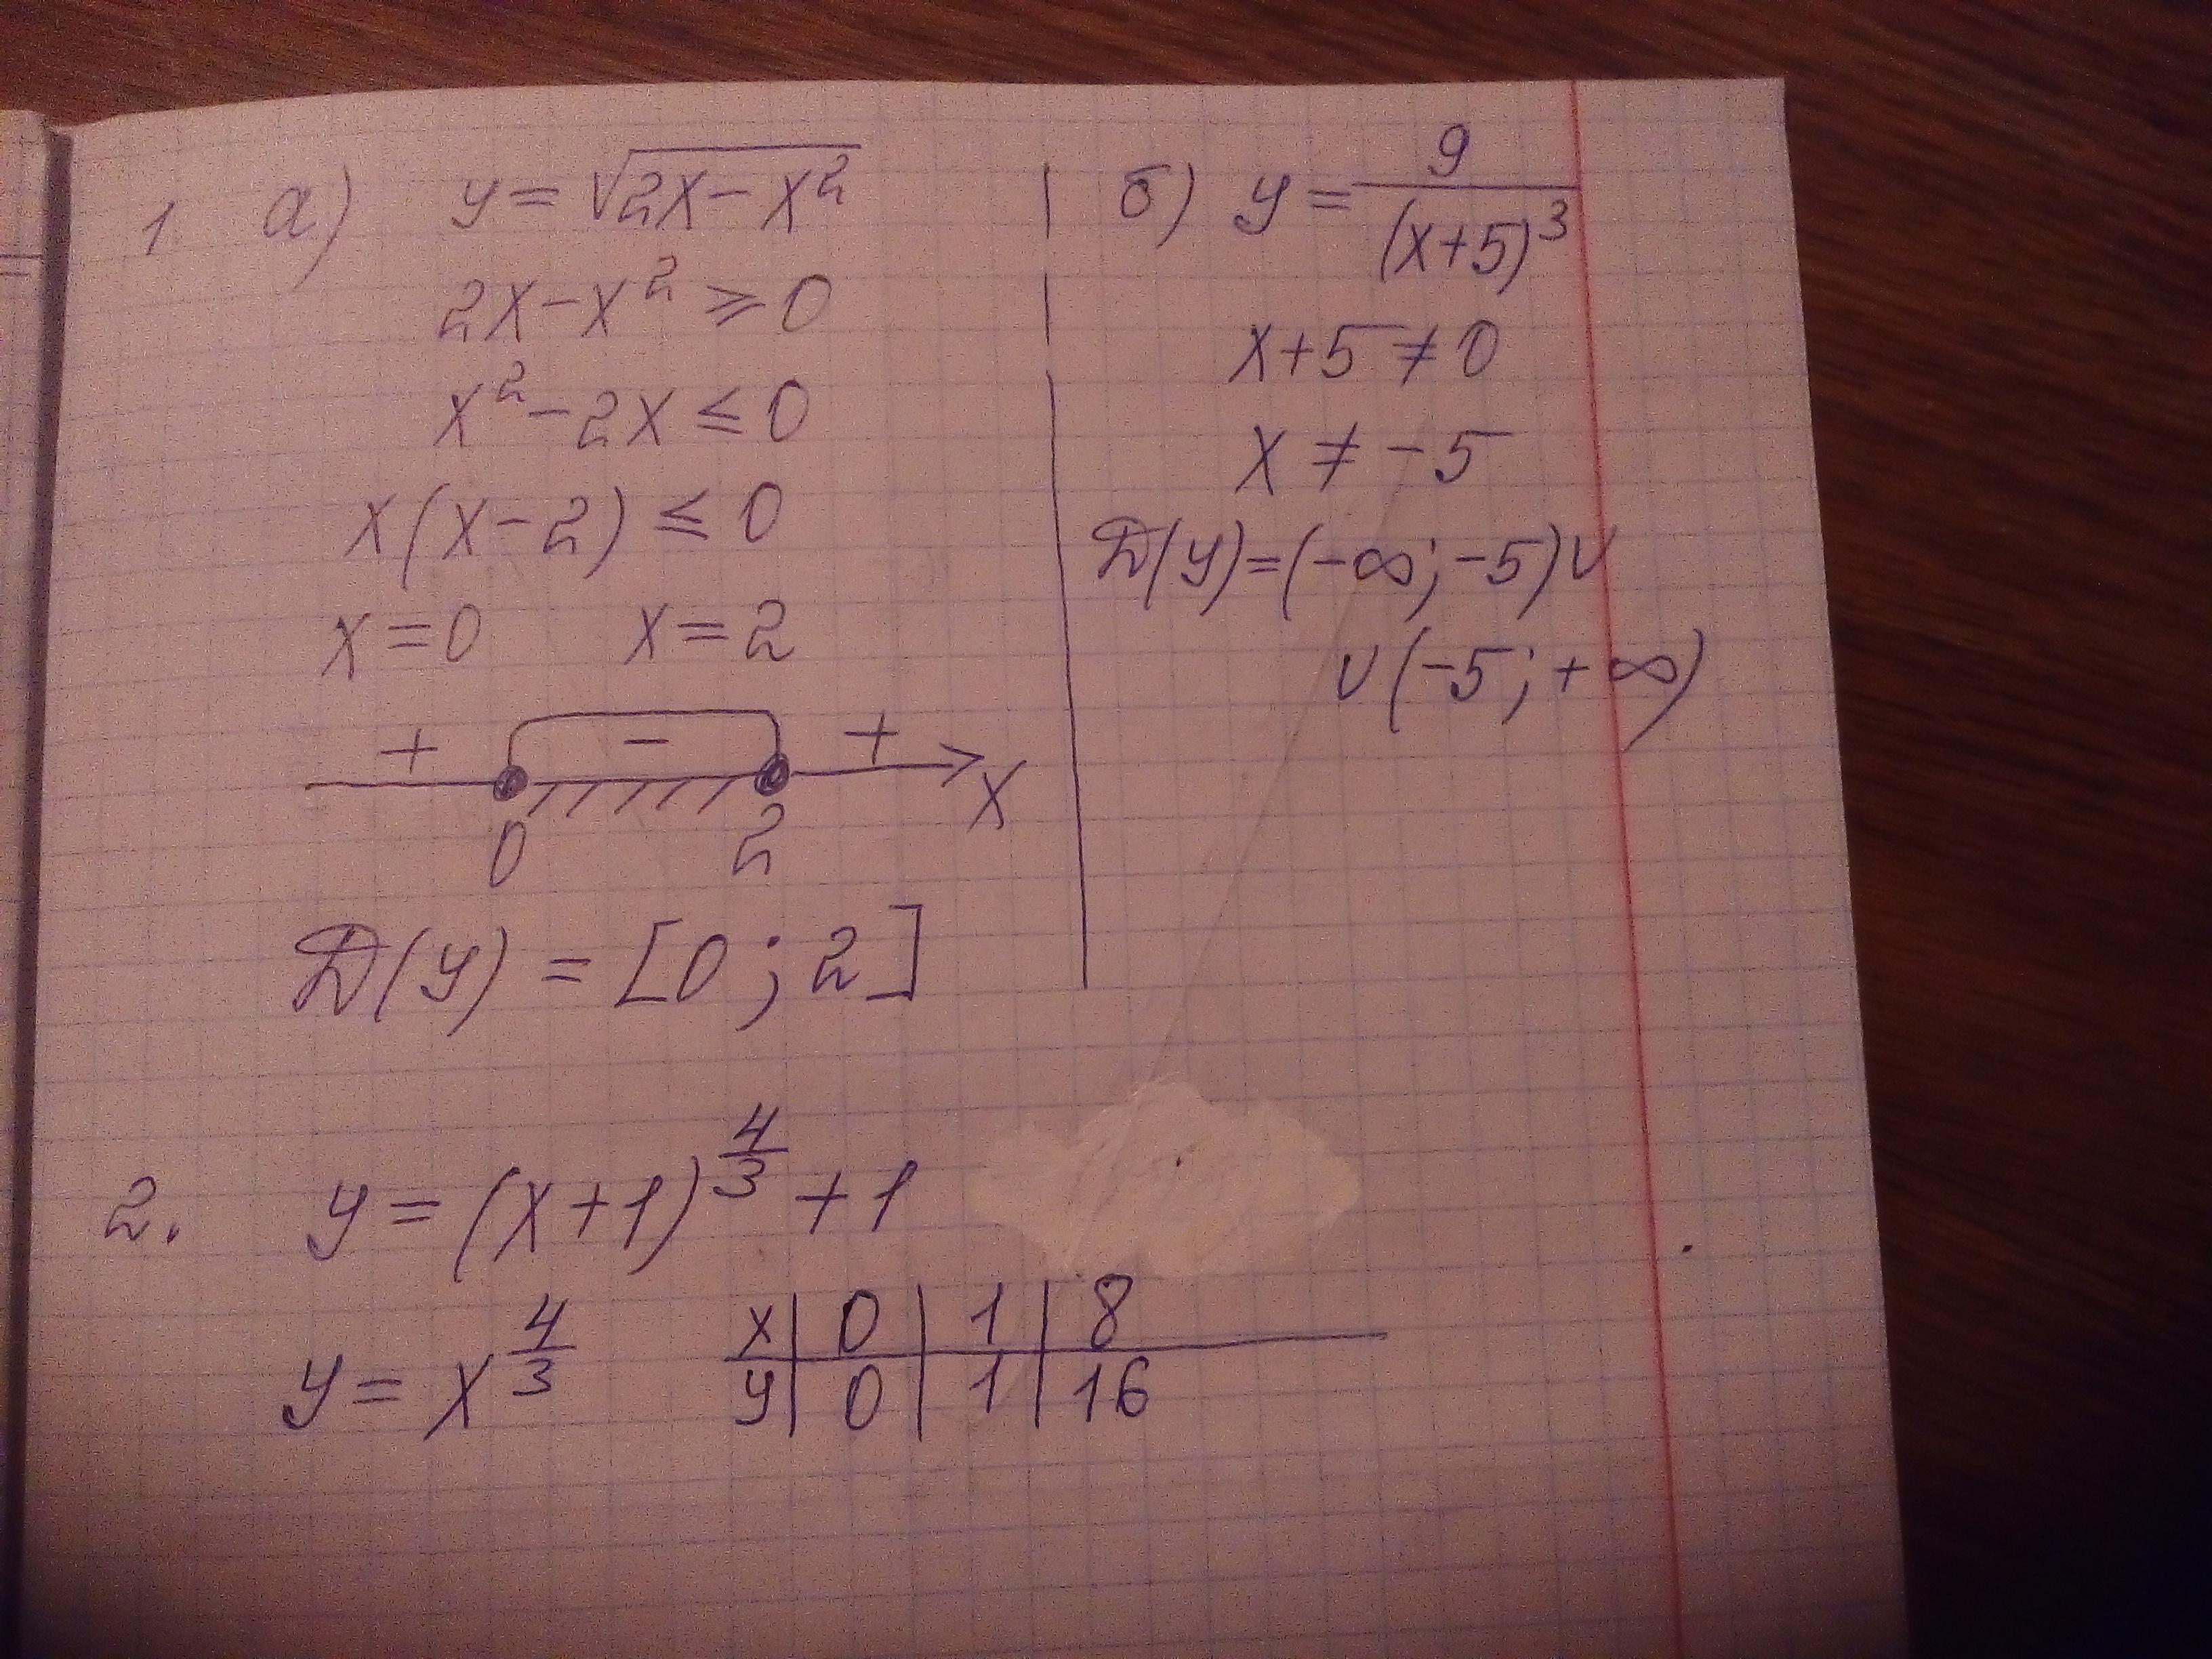 1. а) y = √(2x − x²)
2x − x² ⩾ 0
x² − 2x ≤ 0
x(x − 2) ≤ 0
x = 0 x = 2
+ − +
0 2 x
D(y) = [0 ; 2]
б) y = 9/(x+5)³
x + 5 ≠ 0
x ≠ −5
D(y) = (−∞; −5) ∪
∪ (−5; +∞)
2. y = (x+1)^(4/3) + 1
y = x^(4/3)
x | 0 | 1 | 8
y | 0 | 1 | 16